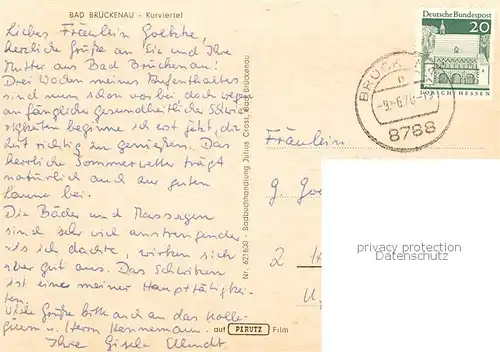 BAD BRÜCKENAU - Kurviertel
Liebes Fräulein Goethe,
herzliche Grüße an Sie und Ihre
Mutter aus Bad Brückenau!
Drei Wochen meines Aufenthaltes
sind nun schon vorbei doch wegen
anfänglicher gesundheitlicher Schwie-
rigkeiten beginne ich erst jetzt, die
Zeit richtig zu genießen. Das
herrliche Sommerwetter trägt
natürlich auch zur guten
Laune bei.
Die Bäder und Massagen
sind sehr viel anstrengender
als ich dachte, wirken sich
aber gut aus. Das Schwitzen
ist eine meiner Haupttätigkei-
ten.
Viele Grüße bitte auch an das Kolle-
gium u. Herrn Hennemann.
Ihre Gisela
auf PERUTZ Film
Nr. 621600 - Badbuchhandlung Julius Crass, Bad Brückenau
Deutsche Bundespost
20
LORSCH/HESSEN
8788
Fräulein
G.
2
privacy protection
Datenschutz